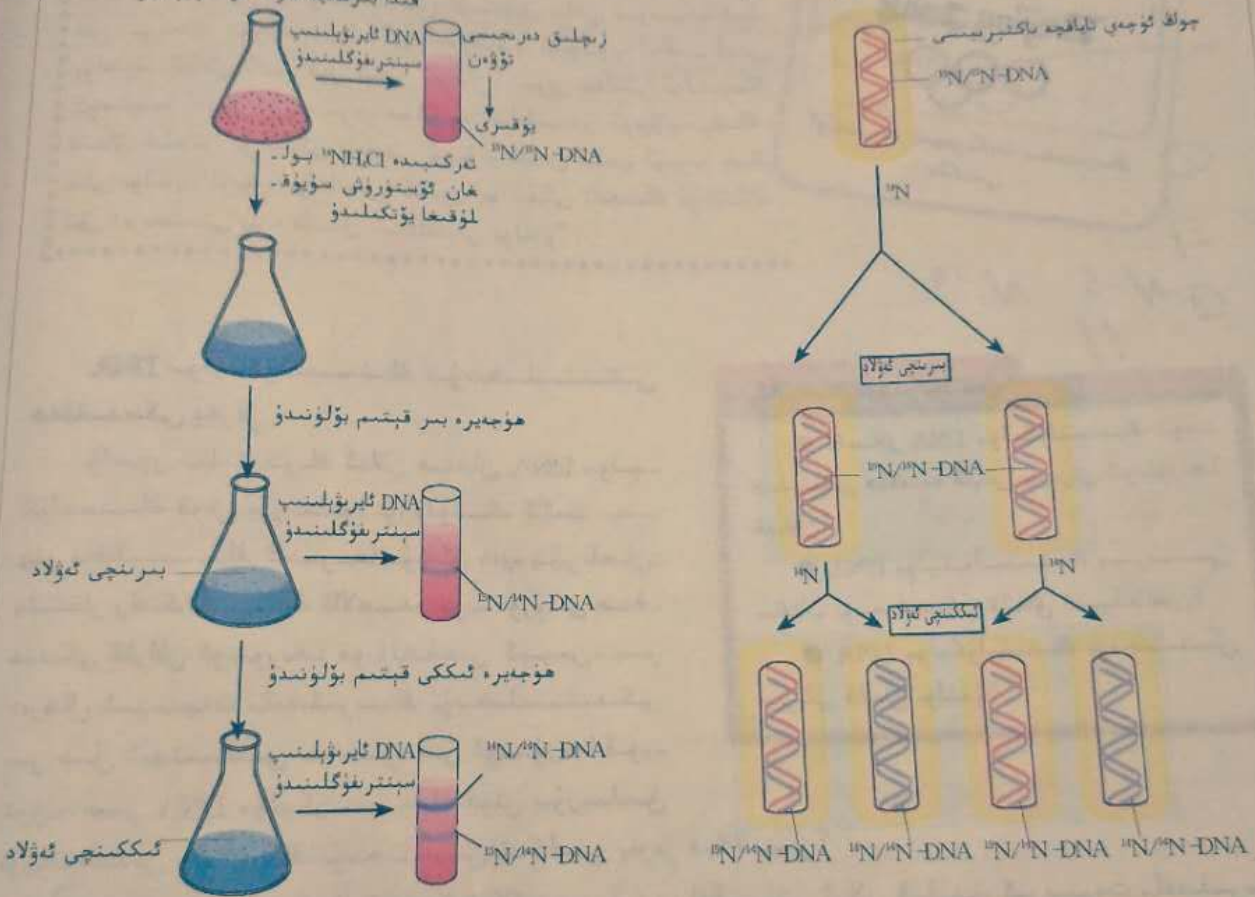 DNA ئايرىۋېلىنىپ
سېنترىفۇگلىنىدۇ
زىچلىق دەرىجىسى
تۆۋەن
يۇقىرى
¹⁵N/¹⁵N-DNA
تەركىبىدە ¹⁴NH₄Cl بول-
غان ئۆستۈرۈش سۇيۇق-
لۇقىغا يۆتكىلىدۇ
ھۈجەيرە بىر قېتىم بۆلۈنىدۇ
DNA ئايرىۋېلىنىپ
سېنترىفۇگلىنىدۇ
بىرىنچى ئەۋلاد
¹⁵N/¹⁴N-DNA
ھۈجەيرە ئىككى قېتىم بۆلۈنىدۇ
DNA ئايرىۋېلىنىپ
سېنترىفۇگلىنىدۇ
¹⁴N/¹⁴N-DNA
ئىككىنچى ئەۋلاد
¹⁵N/¹⁴N-DNA
چوڭ ئۈچەي تاياقچە باكتېرىيىسى
¹⁵N/¹⁵N-DNA
¹⁴N
بىرىنچى ئەۋلاد
¹⁵N/¹⁴N-DNA
¹⁴N
¹⁴N
ئىككىنچى ئەۋلاد
¹⁵N/¹⁴N-DNA
¹⁴N/¹⁴N-DNA
¹⁵N/¹⁴N-DNA
¹⁴N/¹⁴N-DNA